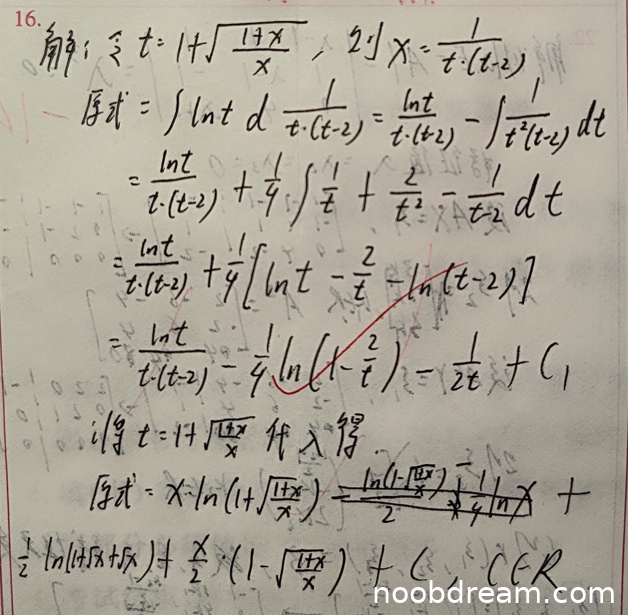 16.
解：令 t = 1+√((1+x)/x) , 则 x = 1/(t·(t-2))
原式 = ∫ ln t d 1/(t·(t-2)) = ln t/(t·(t-2)) - ∫ 1/(t²(t-2)) dt
= ln t/(t·(t-2)) + 1/4 ∫ 1/t + 2/t² - 1/(t-2) dt
= ln t/(t·(t-2)) + 1/4 [ln t - 2/t - ln(t-2)]
= ln t/(t·(t-2)) - 1/4 ln(1-2/t) - 1/(2t) + C₁
将 t = 1+√((1+x)/x) 代入得.
原式 = x·ln(1+√((1+x)/x)) +
1/2 ln(√(1+x)+√x) + x/2·(1-√((1+x)/x)) + C, C∈R
noobdream.com